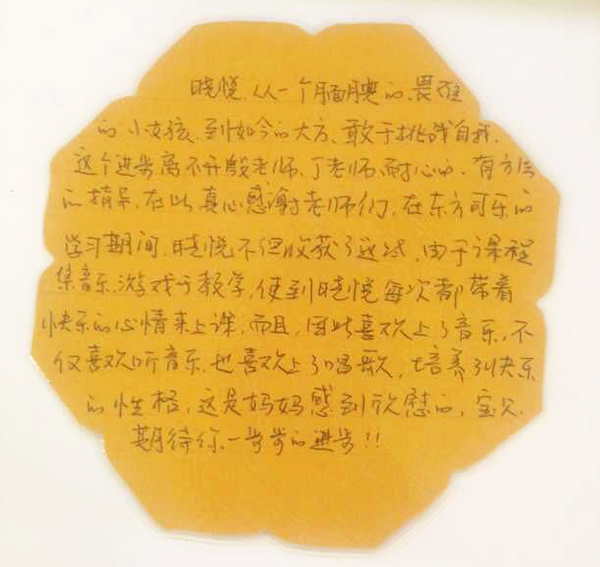 晓悦从一个腼腆的、畏难
的小女孩,到如今的大方、敢于挑战自我,
这个进步离不开殷老师、丁老师耐心的、有方法
的精导,在此真心感谢老师们,在东方可乐的
学习期间,晓悦不但收获了这些,由于课程
集音乐、游戏于教学,使到晓悦每次都带着
快乐的心情来上课,而且,因此喜欢上了音乐,不
仅喜欢听音乐,也喜欢上了唱歌,培养到快乐
的性格,这是妈妈感到欣慰的,宝贝,
期待你一步步的进步!!